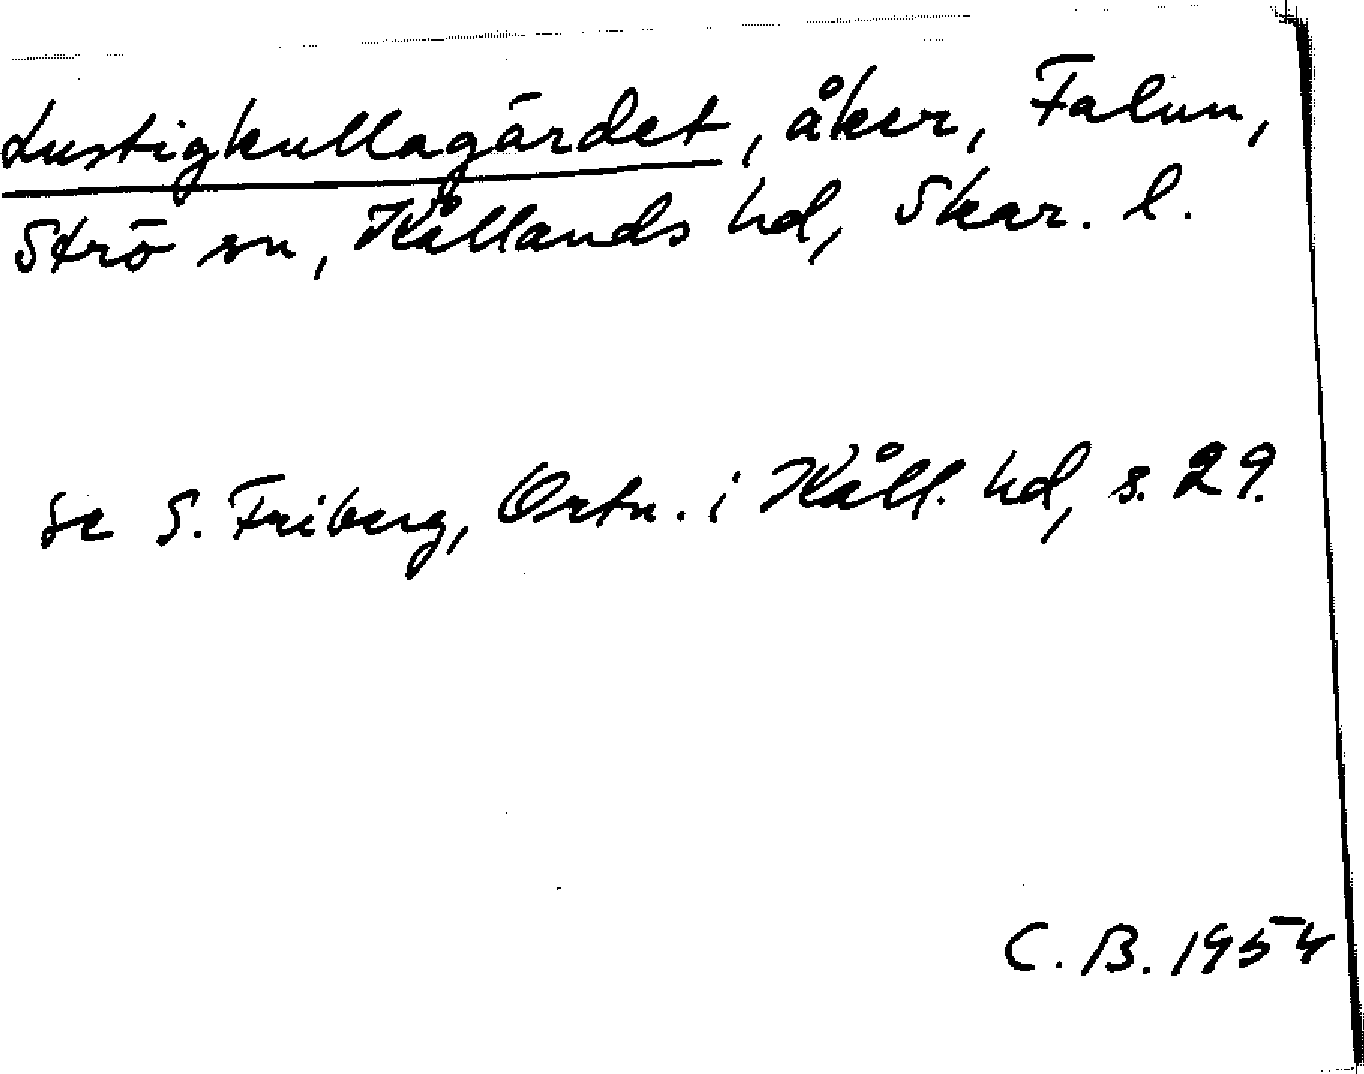 Lustigkullagärdet, åker, Falun,
Strö sn, Kållands hd, Skar. l.
Se S. Friberg, Ortn. i Kåll. hd, s. 29.
C. B. 1954